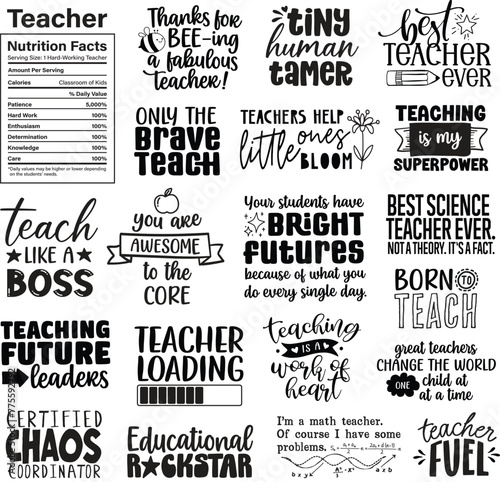 Teacher
Nutrition Facts
Serving Size: 1 Hard-Working Teacher
Amount Per Serving
Calories Classroom of Kids
% Daily Value
Patience 5,000%
Hard Work 100%
Enthusiasm 100%
Determination 100%
Knowledge 100%
Care 100%
*Daily values may be higher or lower depending
on the students' needs.
Thanks for
BEE-ing
a fabulous
teacher!
tiny
human
tamer
best
TEACHER
EVER
ONLY THE
Brave
TEACH
TEACHERS HELP
little ones
BLOOM
TEACHING
is my
SUPERPOWER
teach
LIKE A
BOSS
you are
AWESOME
to the
CORE
Your students have
BRIGHT
futures
because of what you
do every single day.
BEST SCIENCE
TEACHER EVER.
NOT A THEORY. IT'S A FACT.
BORN TO
TEACH
TEACHING
FUTURE
leaders
TEACHER
LOADING
teaching
IS A
work of
heart
great teachers
CHANGE THE WORLD
ONE child at
at a time
CERTIFIED
CHAOS
COORDINATOR
Educational
ROCKSTAR
I'm a math teacher.
Of course I have some
problems.
teacher
FUEL